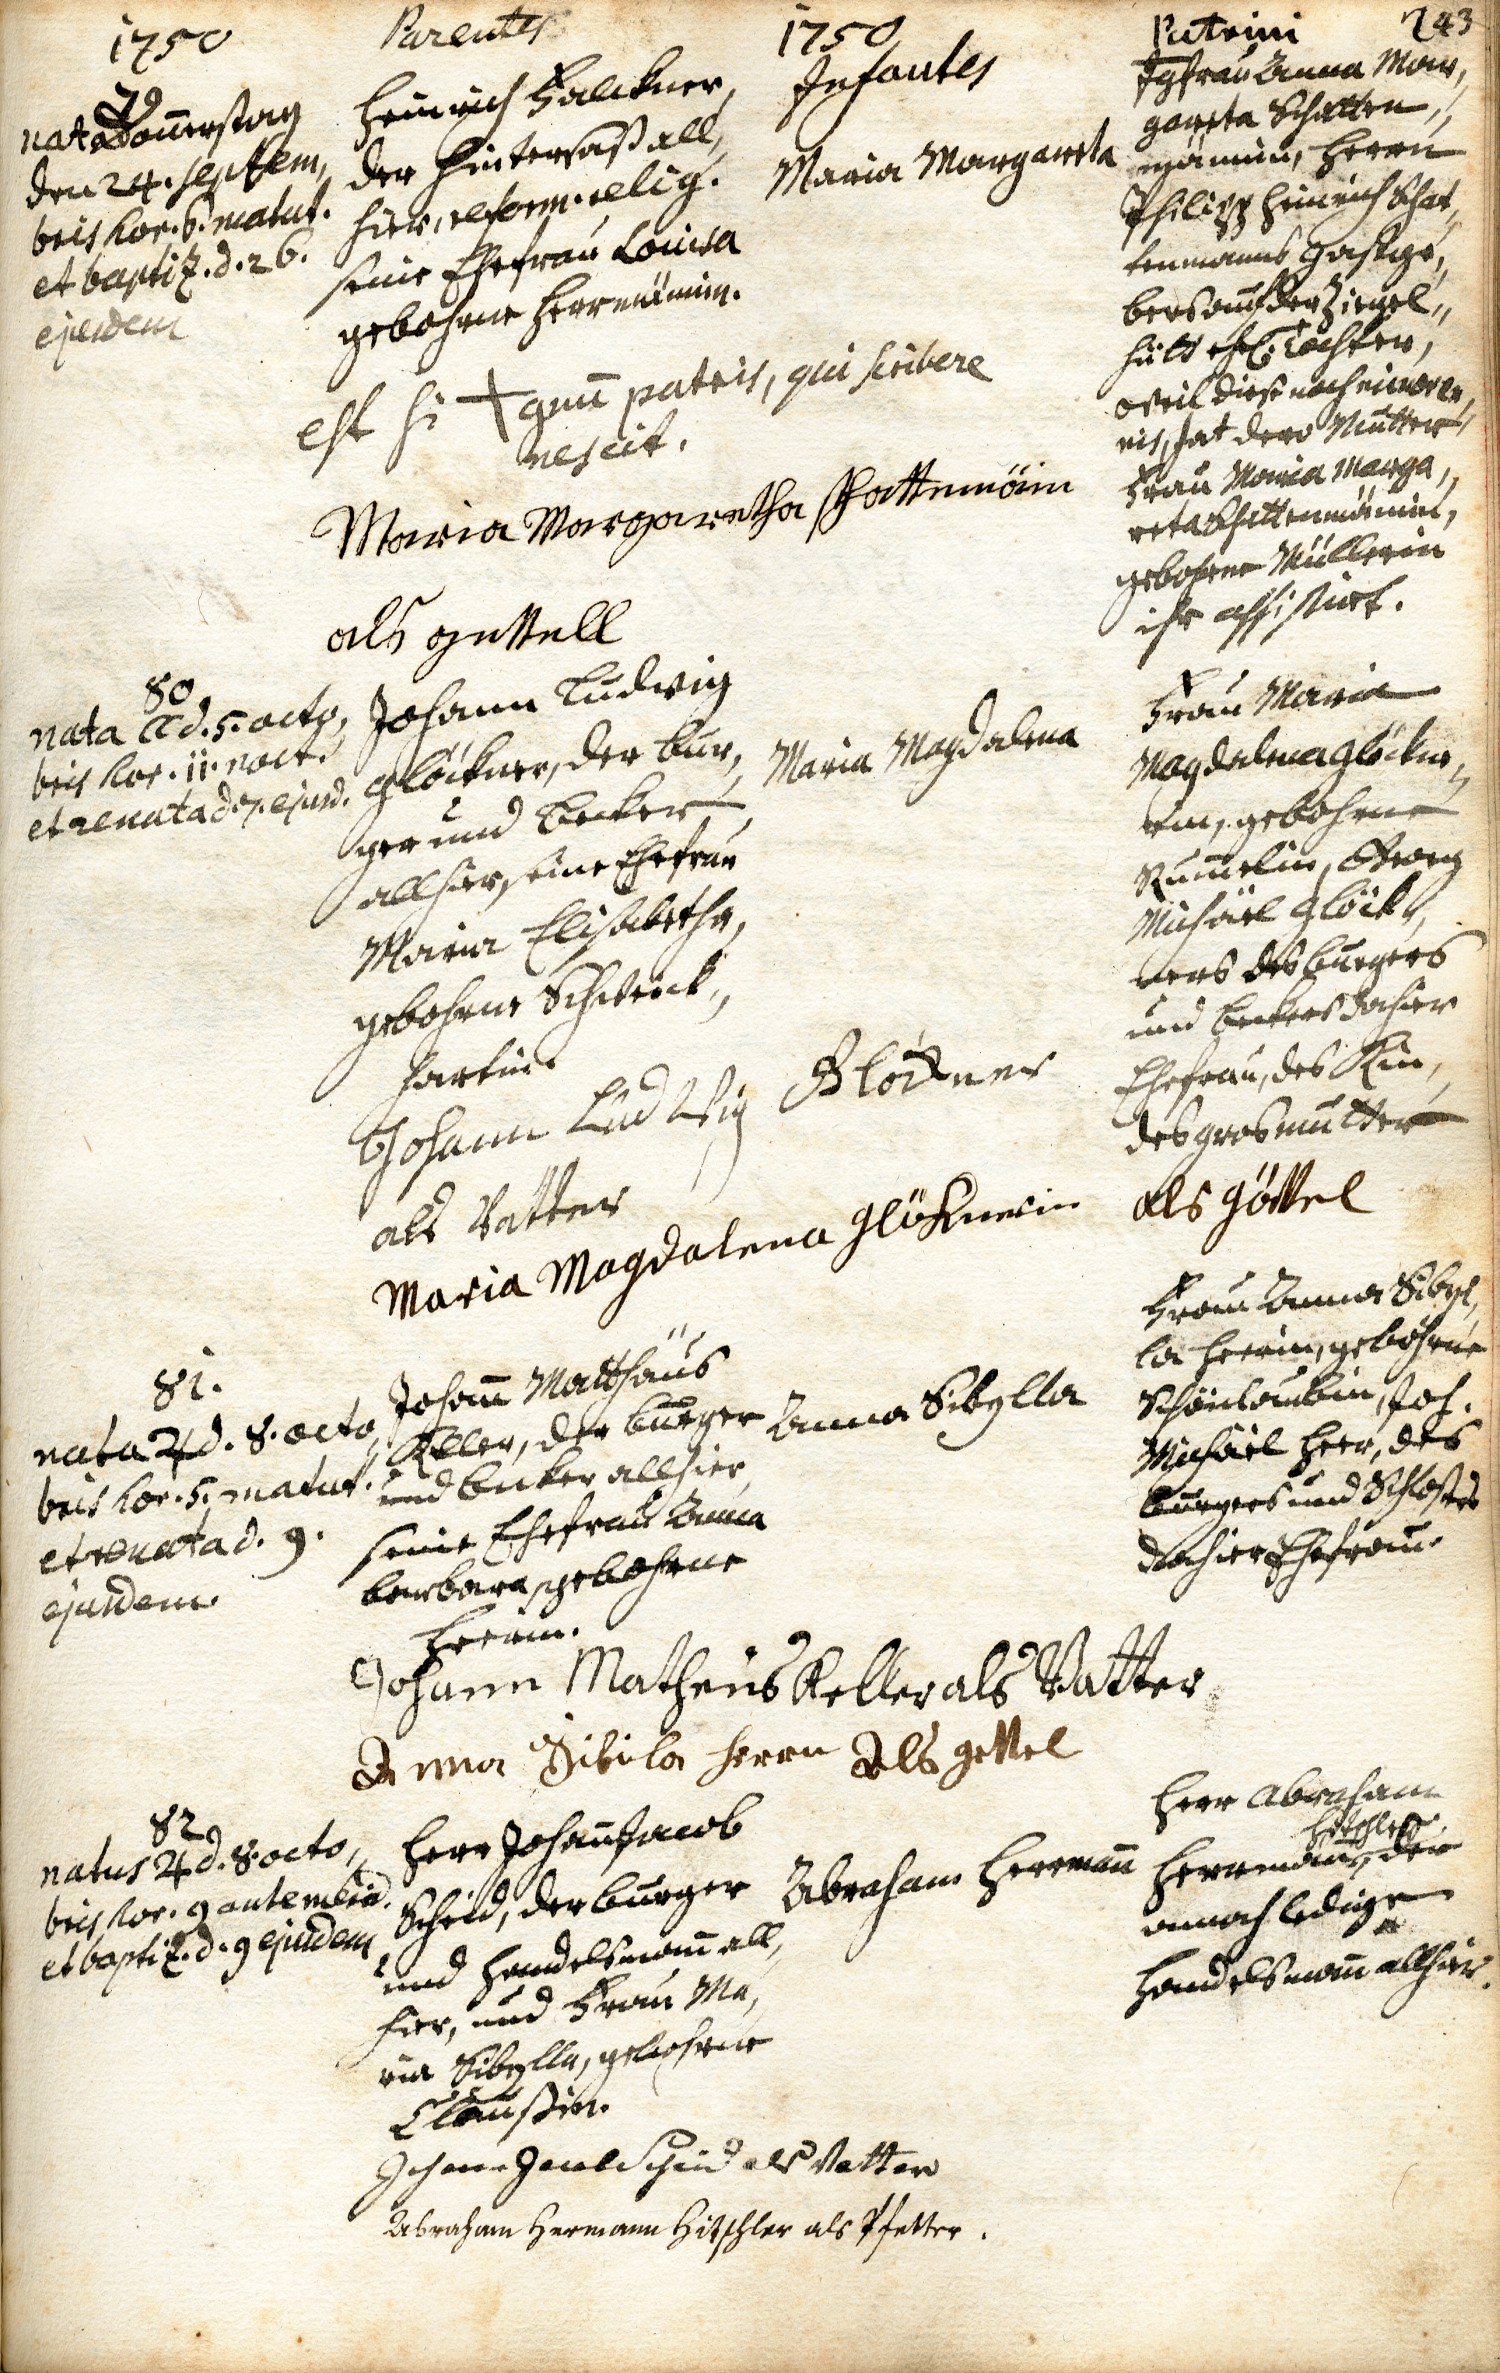 1750
Parentes
1750
Infantes
Patrini
243
79
nata Donnerstag
den 24. septem,
bris hor. 6. matut.
et baptiz. d. 26.
ejusdem
Heinrich Falckner,
der Hintersaß all,
hier, reform. relig.
seine Ehefrau Louisa
gebohrne Herrmännin.
Maria Margareta
Jgfrau Anna Mar,
gareta Schatten,,
männin, Herrn
Philipp Heinrich Schat,
tenmanns Gastge,
bers auf der Ziegel,,
hütt ehel. Tochter,
weil diese noch
hat dero Mutter,
Frau Maria Marga,,
reta Schattenmännin,
gebohrne Müllerin
ihr assistirt.
est hi + gnu patris, qui scribere
nescit.
Maria Margaretha schattemänin
als gettell
80
nata d. 5. octo,
bris hor. 11. noct.
et renata d. 7. ejusd.
Johann Ludwig
Glöckner, der bur,
ger und becker
allhier, seine Ehefrau
Maria Elisabetha,
gebohrne Schweick,,
hartin.
Maria Magdalena
Frau Maria
Magdalena Glöckne,,
rin, gebohrne
Rummelin, Georg
Michäel Glöck,
ners des burgers
und beckers dahier
Ehefrau, des Kin,
des grosmutter
Johann Ludwig Glöckner
als Vatter
Maria Magdalena Glöknerin als Göttel
81.
nata 4 d. 8. octo,
bris hor. 5. matut.
et renata d. 9.
ejusdem.
Johann Matthäus
Keller, der burger
und becker allhier
seine Ehefrau Anna
barbara, gebohrne
Heerin.
Anna Sibylla
Frau Anna Sibyl,
la Heerin, gebohrne
Schönlaubin, Joh.
Michäel Heer, des
burgers und Schlossers
dahier Ehefrau.
Johann Matheus Keller als Vatter
Anna Sibila Herrn Als gettel
82
natus 4 d. 8. octo,,
bris hor. 9 ante merid.
et baptiz. d. 9 ejusdem
Herr Johann Jacob
Scheid, der burger
und Handelsmann all,
hier, und Frau Ma,
ria Sibylla, gebohrne
Claussin.
Abraham Herrmann
Herr Abraham
Hitschler
Herrmann, der
annoch ledige
Handelsmann allhier.
Johann Jacob Scheid als Vatter
Abraham Hermann Hitschler als Pfetter.